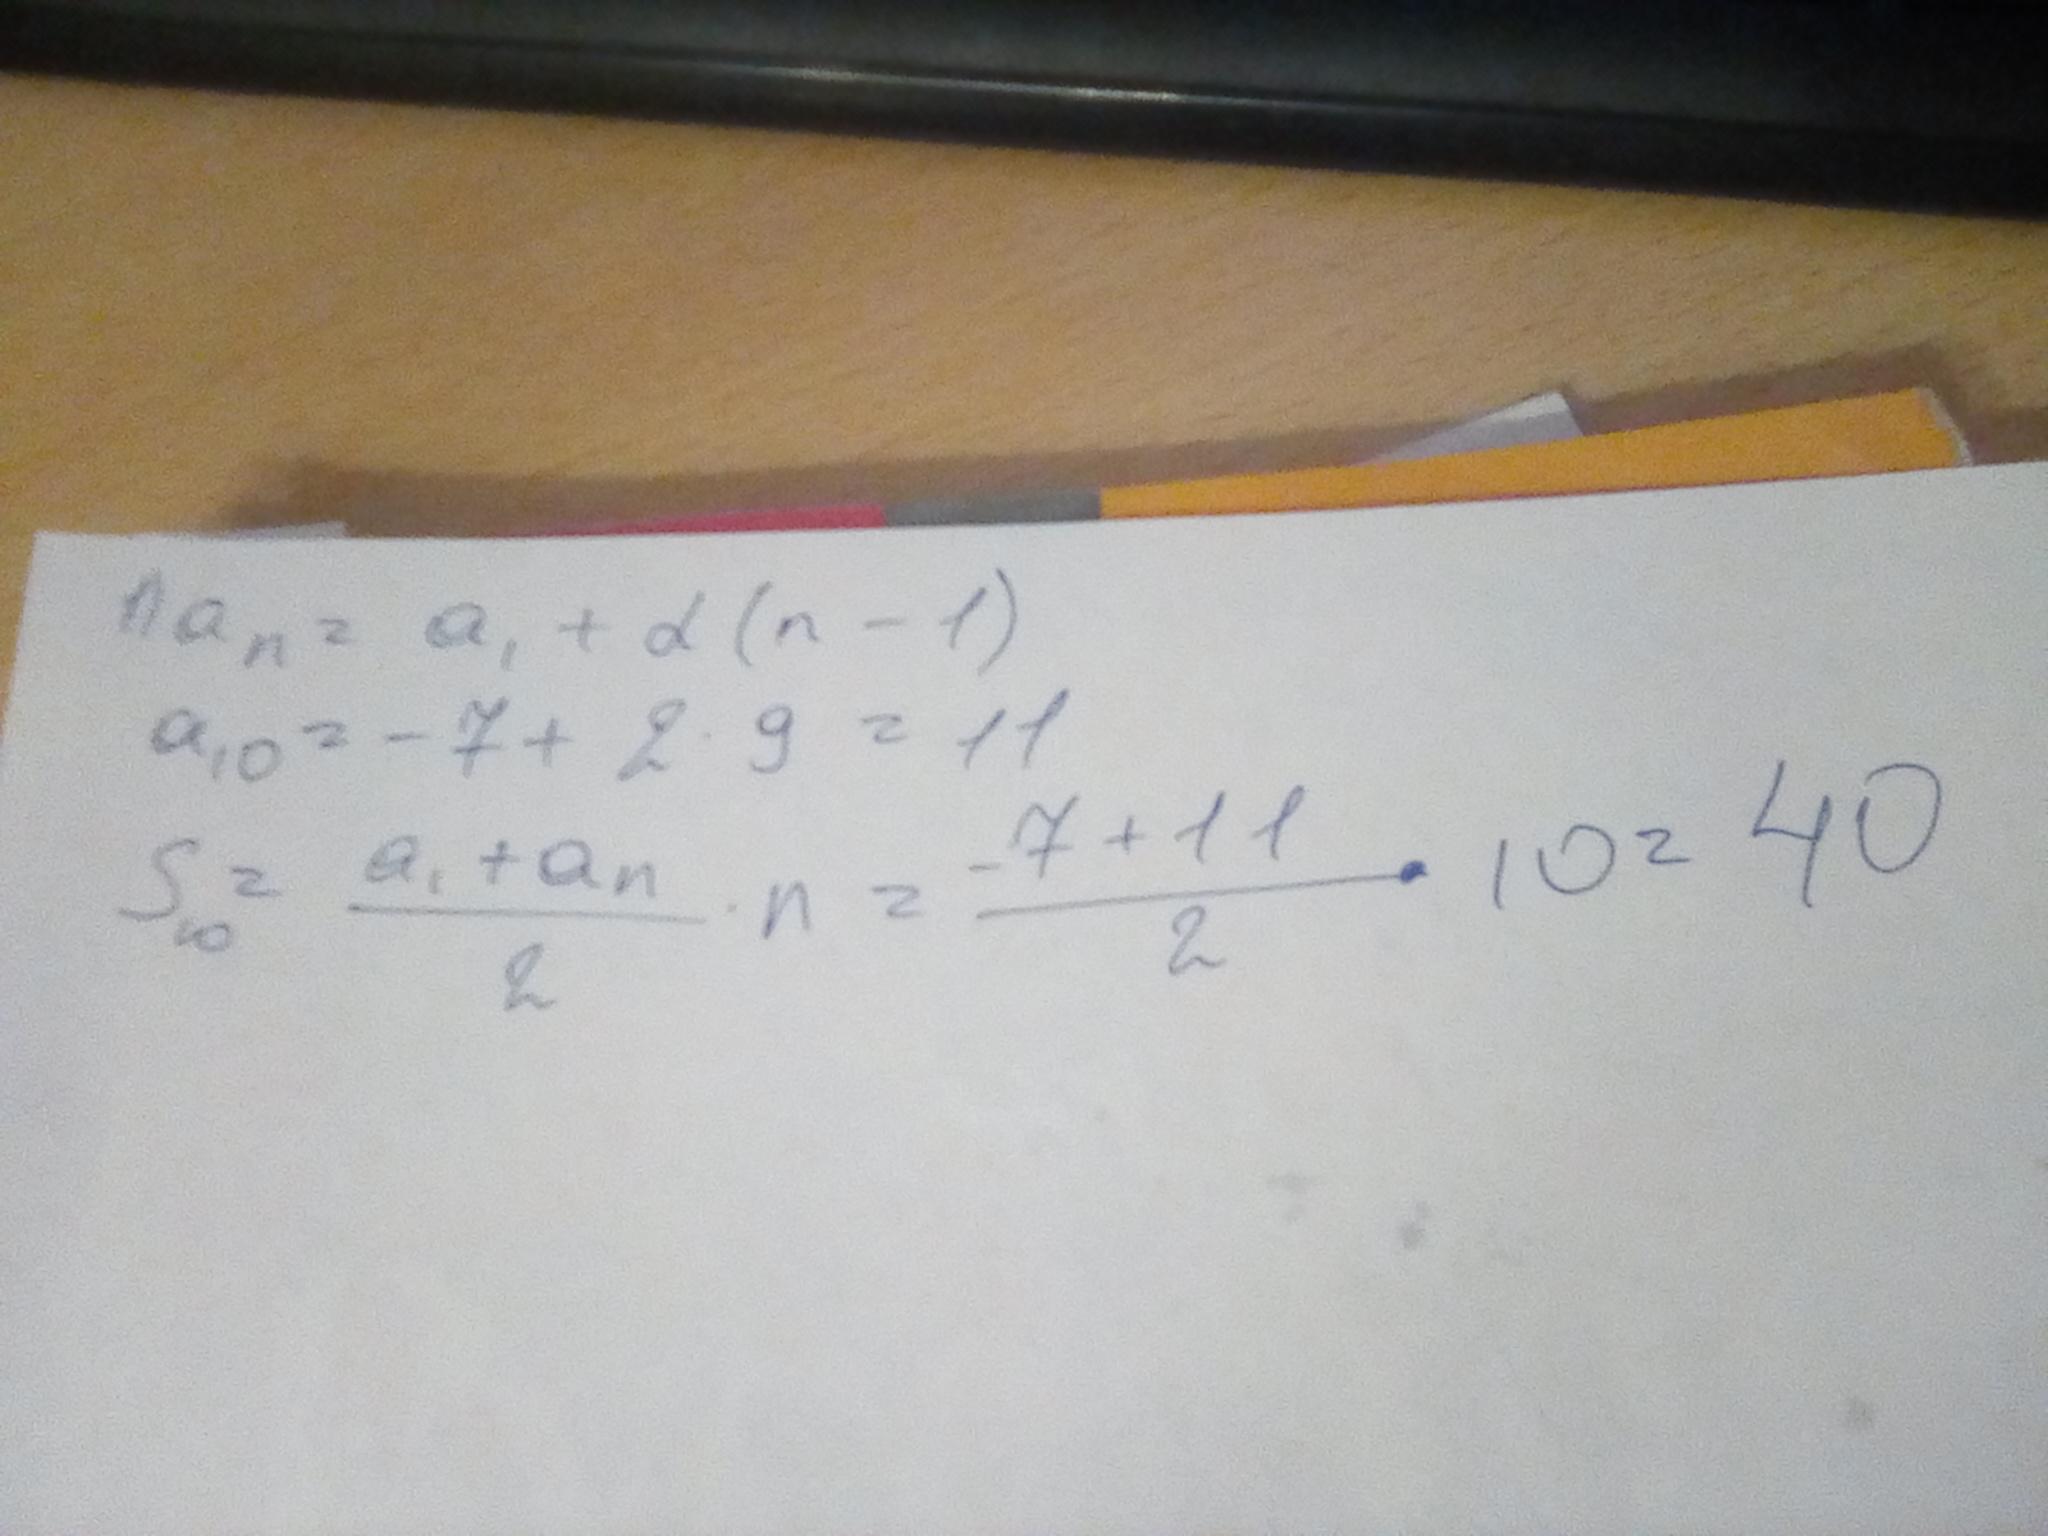 aₙ = a₁ + d(n - 1)
a₁₀ = -7 + 2 · 9 = 11
S₁₀ = (a₁ + aₙ)/2 · n = (-7 + 11)/2 · 10 = 40